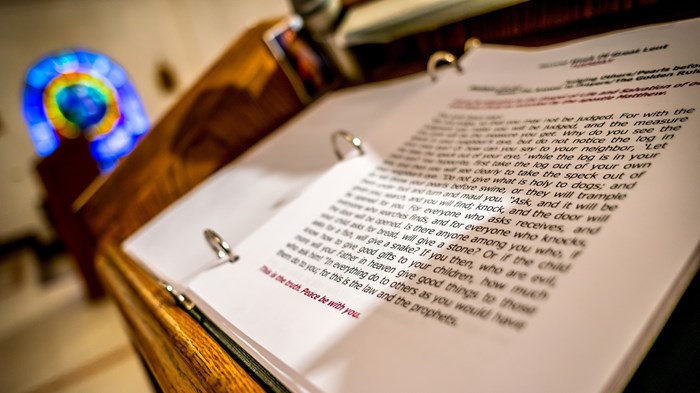 Second Week Of Great Lent
Judging Others/Pearls before
the Golden Rule
and Salvation of
by the apostle Matthew.
may not be judged. For with the
you will be judged, and the measure
you get. Why do you see the
eye, but do not notice the log in
how can you say to your neighbor, 'Let
speck out of your eye,' while the log is in your
first take the log out of your own
see clearly to take the speck out of
not give what is holy to dogs; and
before swine, or they will trample
under foot and turn and maul you. "Ask, and it will be
and you will find; knock, and the door will
opened for you. For everyone who asks receives, and
who searches finds, and for everyone who knocks,
will be opened. Is there anyone among you who, if
child asks for bread, will give a stone? Or if the child
for a fish, will give a snake? If you then, who are evil,
know how to give good gifts to your children, how much
more will your Father in heaven give good things to those
who ask him! "In everything do to others as you would have
them do to you; for this is the law and the prophets.
This is the truth. Peace be with you.